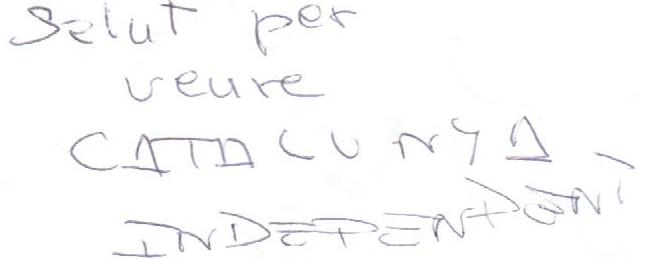 Salut per
veure
CATALUNYA
INDEPENDENT